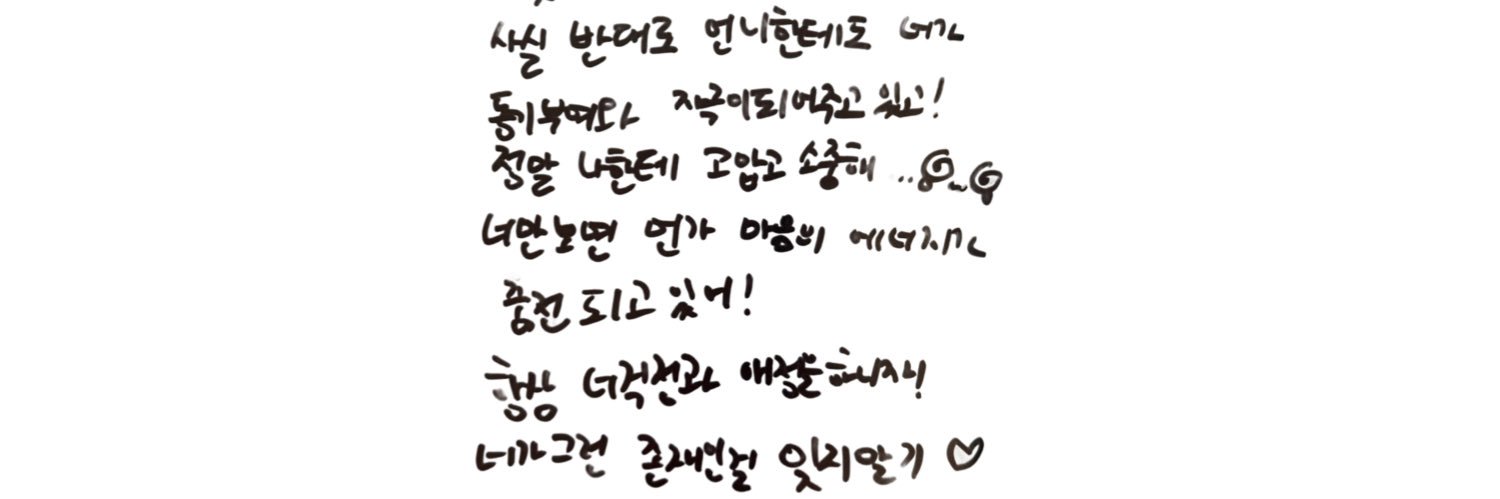 사실 반대로 언니한테도 네가
동기부여와 자극이되어주고 있고!
정말 나한테 고맙고 소중해 ..
너만보면 언가 마음의 에너지가
충전 되고 있어!
항상 너걱전과 애정뿐하니자나!
네가그런 존재인걸 잊지말기 ♡